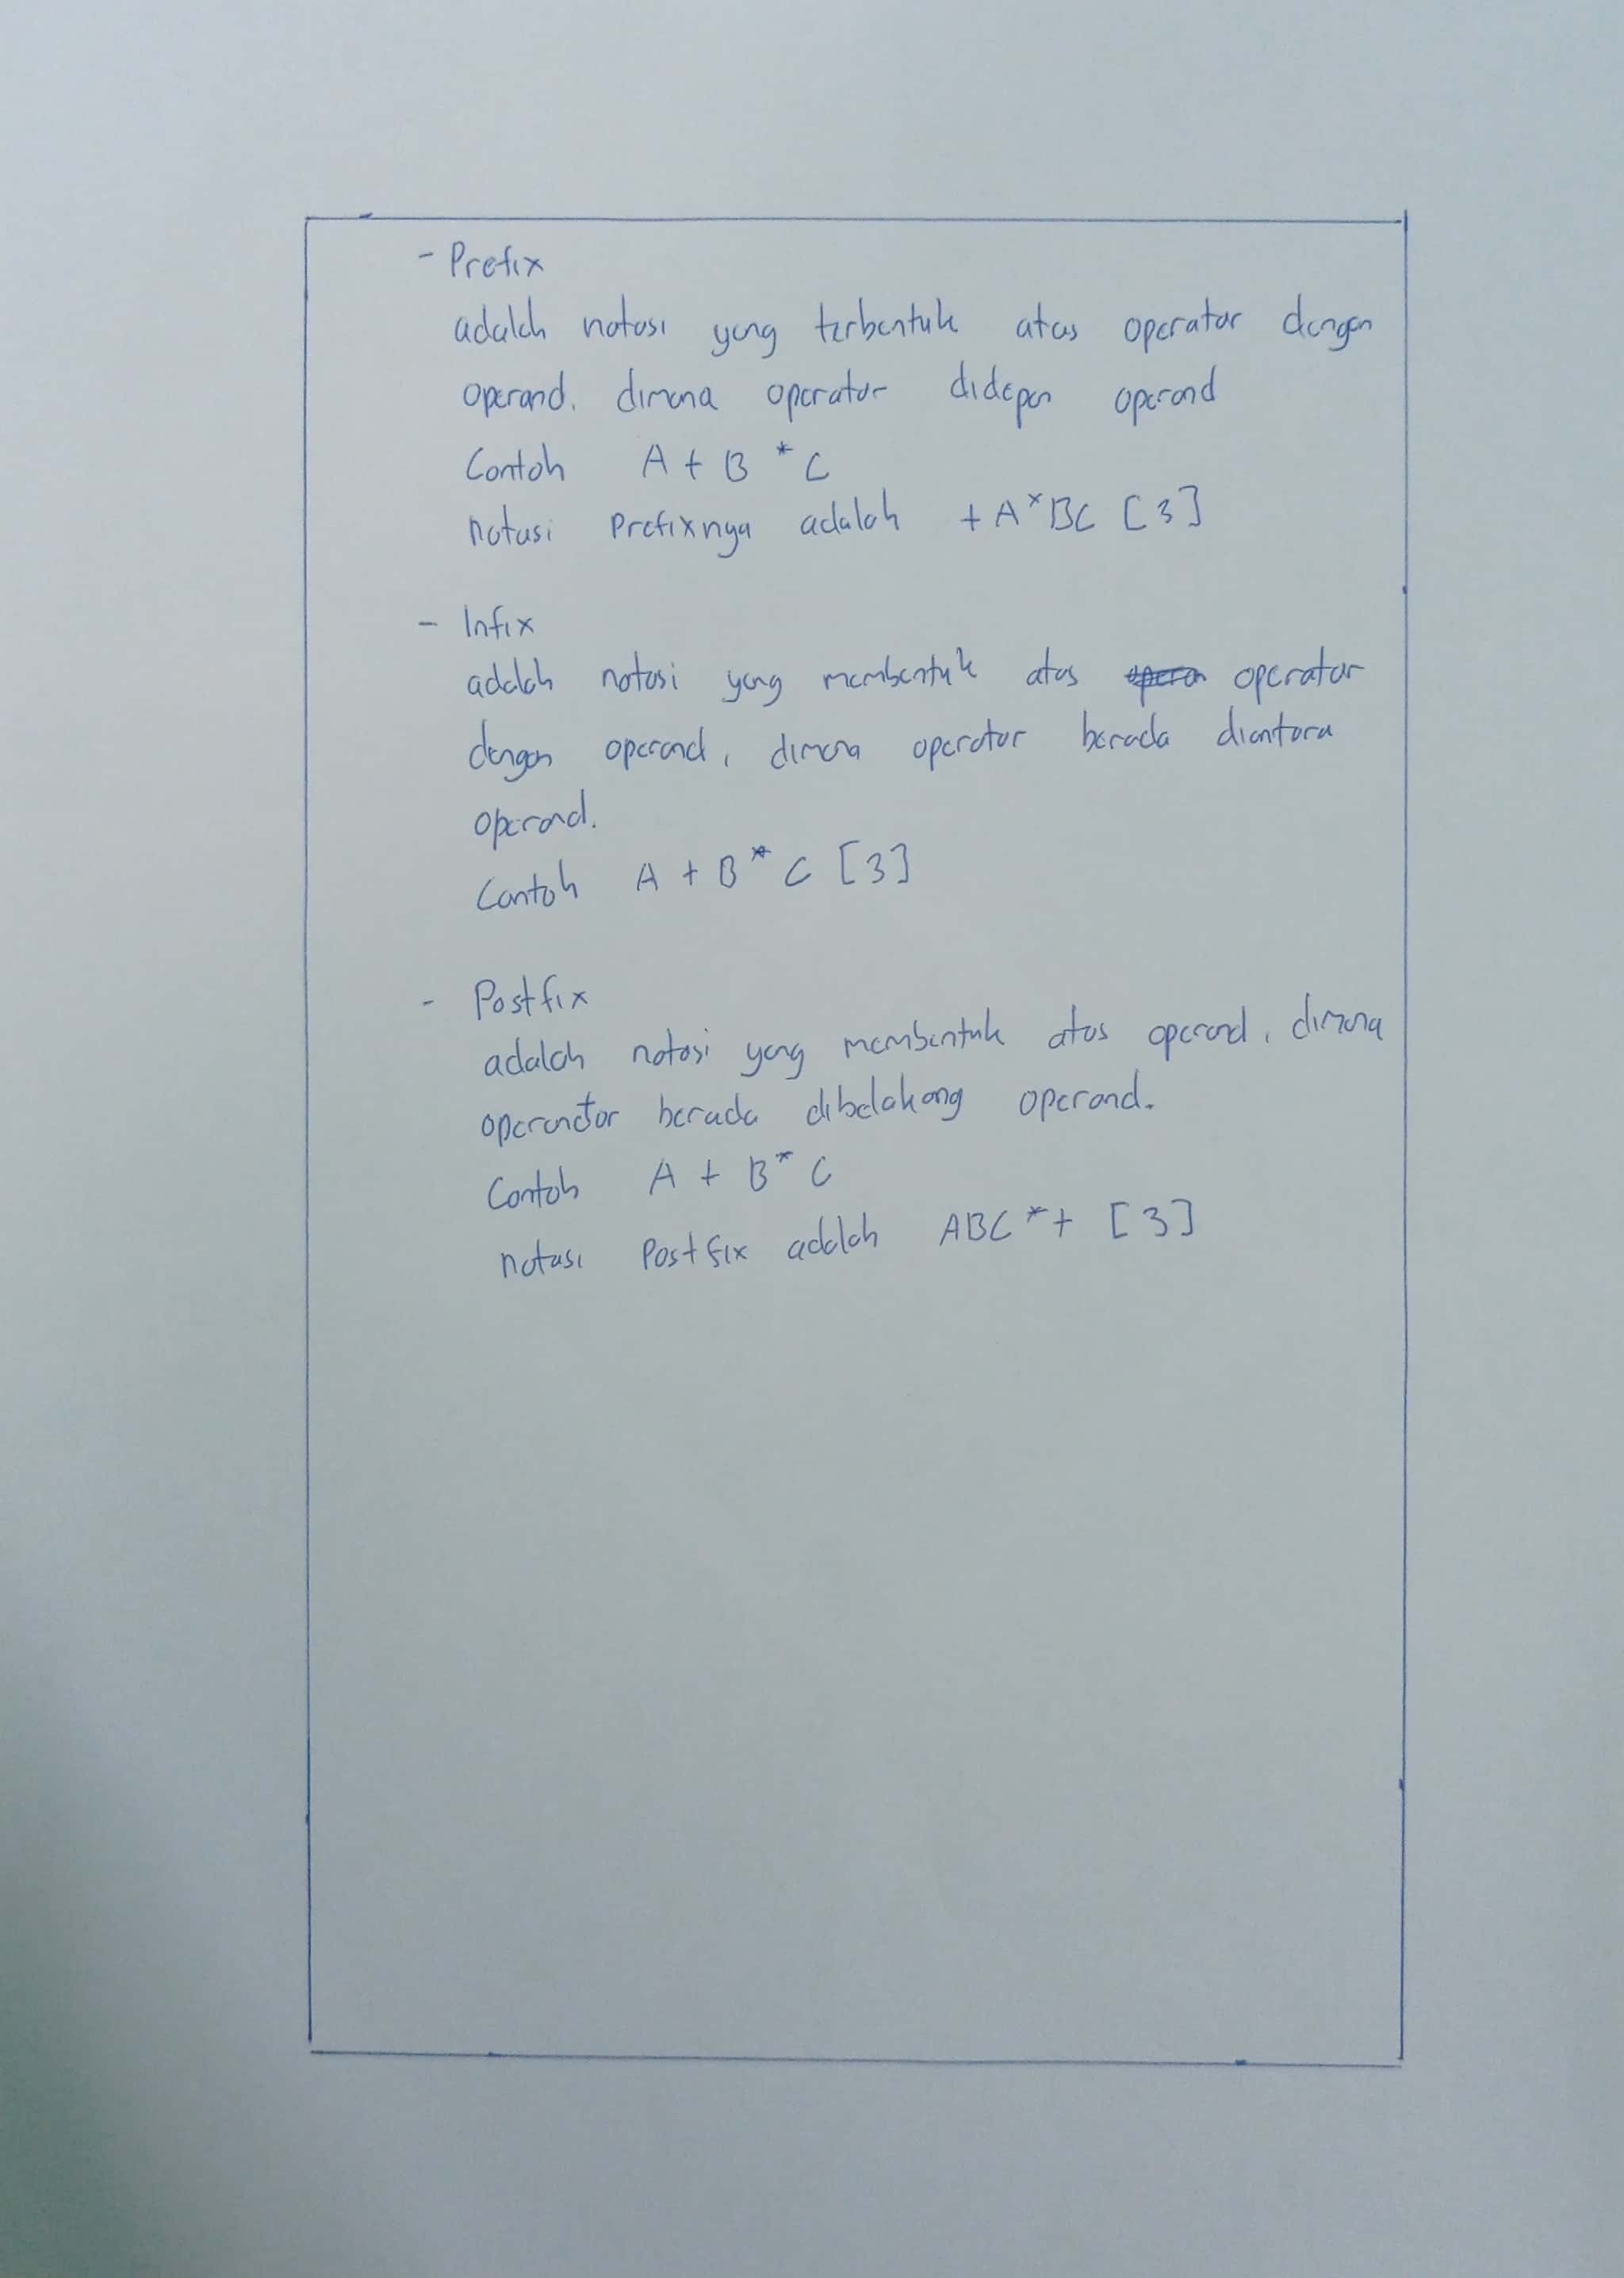 - Prefix
adalah notasi yang terbentuk atas operator dengan
operand. dimana operator didepan operand
Contoh A + B * C
notasi Prefixnya adalah + A*BC [3]
- Infix
adalah notasi yang membentuk atas operator
dengan operand, dimana operator berada diantara
operand.
Contoh A + B * C [3]
- Postfix
adalah notasi yang membentuk atas operand, dimana
operandtor berada dibelakang operand.
Contoh A + B * C
notasi Postfix adalah ABC*+ [3]